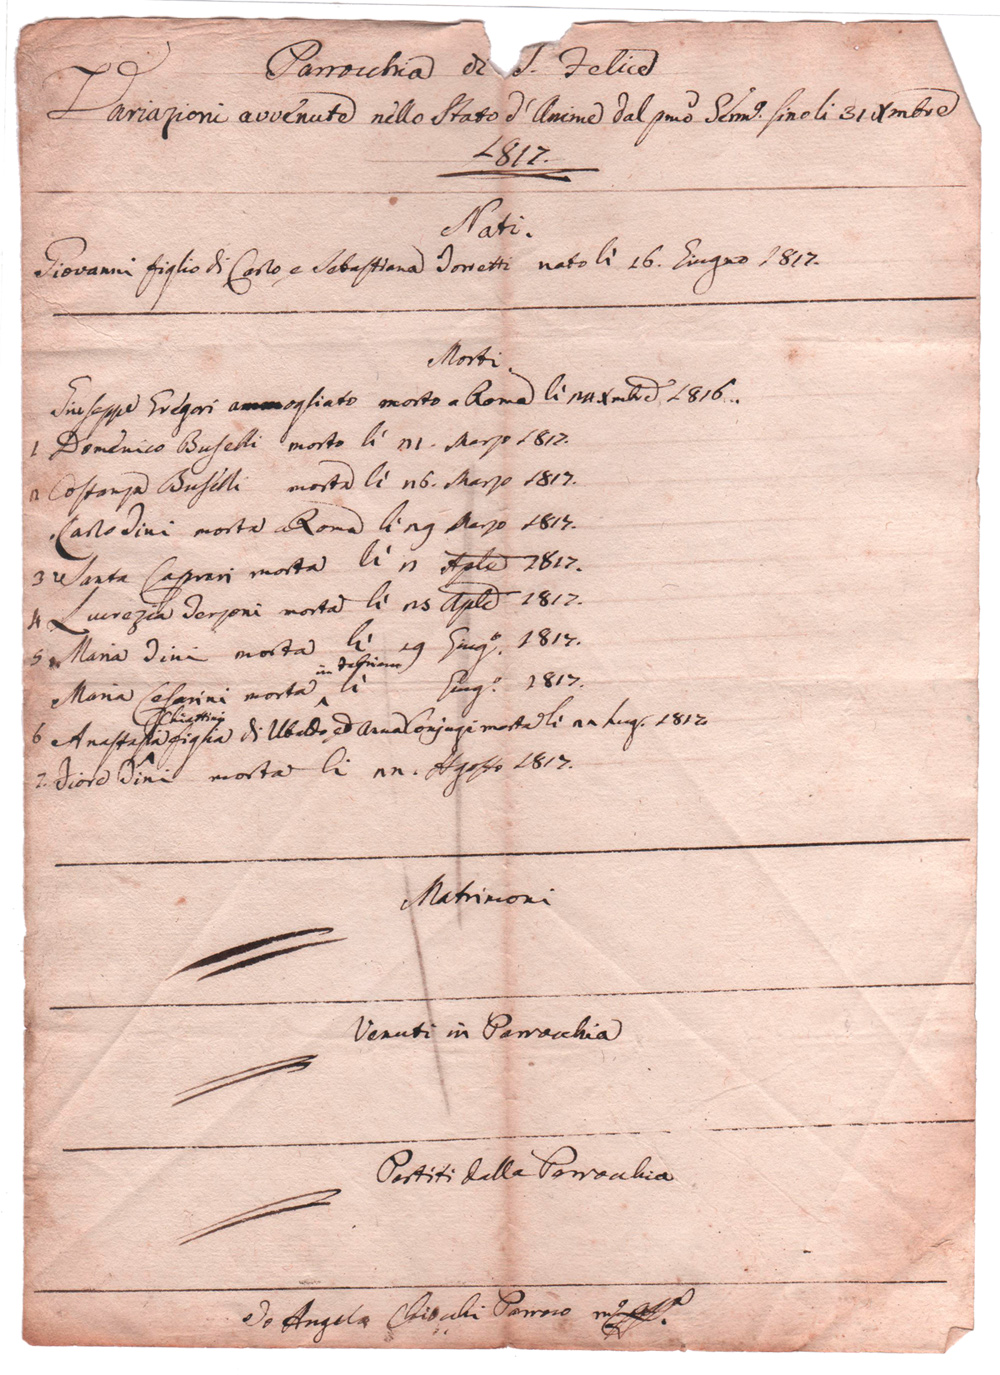 Parrocchia di S. Felice
Variazioni avvenute nello Stato d'Anime dal pmo Genn.o sino li 31 Xmbre
1817.
Nati.
Giovanni figlio di Carlo e Sebastiana Torretti nato li 16. Giugno 1817.
Morti.
Giuseppe Gregori ammogliato morto a Roma li Xmbre 1816..
1 Domenico Buselli morto li 21. Marzo 1817.
2 Costanza Buselli morta li 26. Marzo 1817.
Carlo Tini morto a Roma li 29 Marzo 1817.
3 Santa Caprari morta li Aple 1817.
4 Lucrezia Terzoni morta li 25 Aple 1817.
5 Maria Tini morta li 19 Giug.o 1817.
Maria Cesarini morta li Giug.o 1817.
6 Anastasia Chiattini figlia di Ubaldo, ed Anna Conjugi morta li 22 Lug. 1817
7. Fiore Tini morta li 22. Agosto 1817.
Matrimoni
Venuti in Parrocchia
Partiti dalla Parrocchia
Io Angelo Chiocchi Parroco